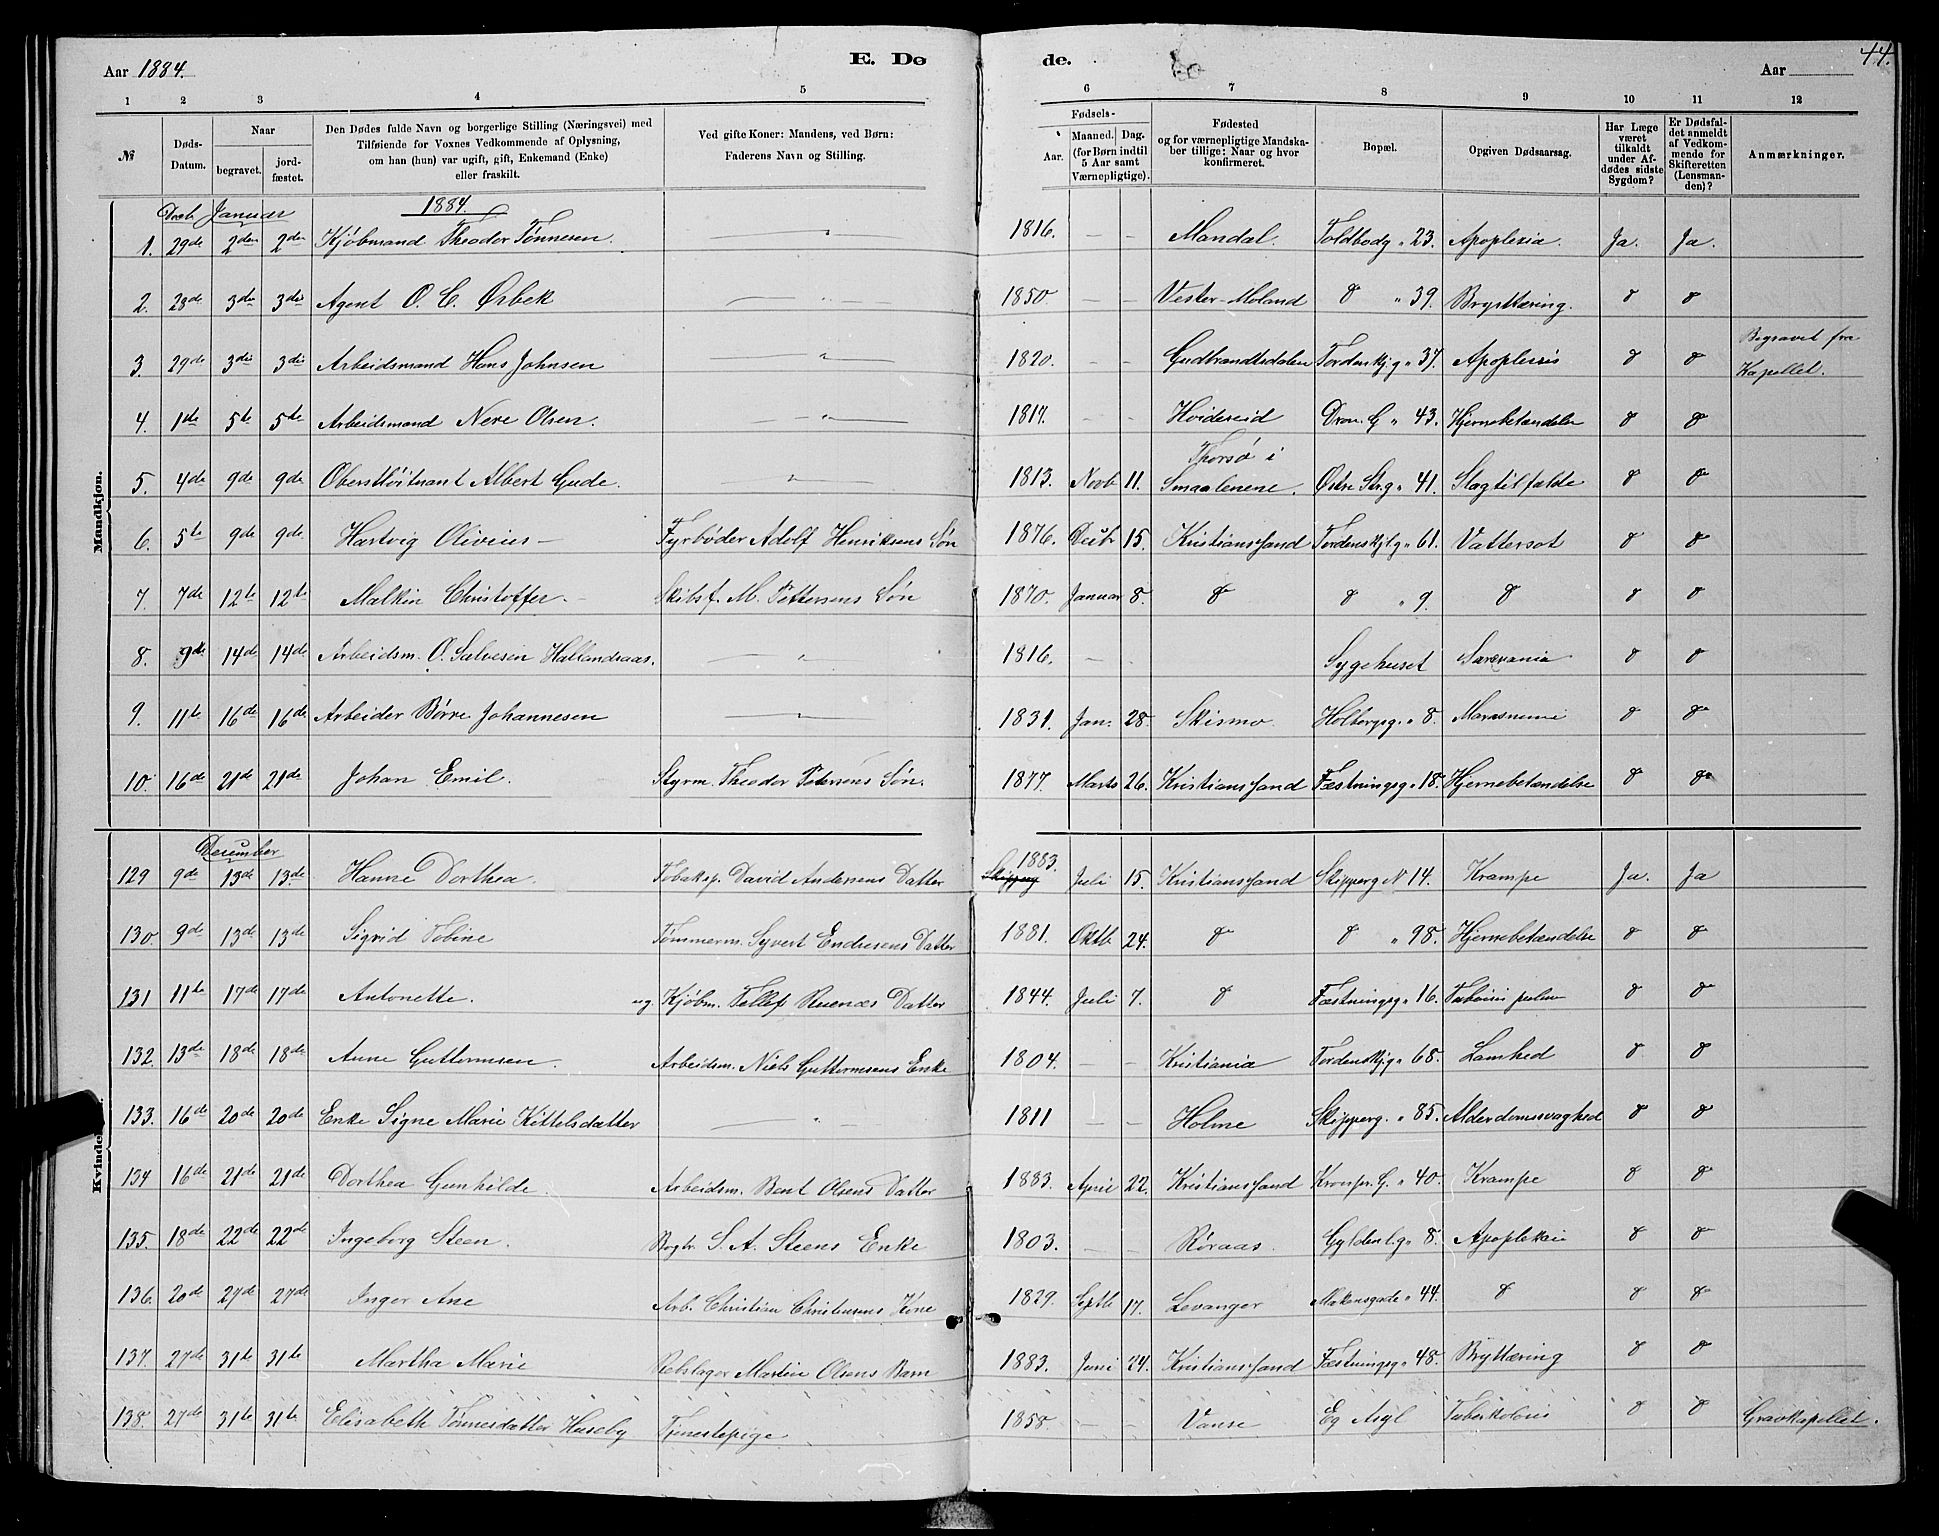 Aar 1884.
E. Dø
de.
44.
Aar
1 2 3 4 5 6 7 8 9 10 11 12
№
Døds-Datum.
Naar
begravet.
jord-fæstet.
Den Dødes fulde Navn og borgerlige Stilling (Næringsvei) med
Tilføiende for Voxnes Vedkommende af Oplysning,
om han (hun) var ugift, gift, Enkemand (Enke)
eller fraskilt.
Ved gifte Koner: Mandens, ved Børn:
Faderens Navn og Stilling.
Fødsels-
Aar.
Maaned. Dag.
(for Børn indtil
5 Aar samt
Værnepligtige).
Fødested
og for værnepligtige Mandska-
ber tillige: Naar og hvor
konfirmeret.
Bopæl.
Opgiven Dødsaarsag.
Har Læge
været
tilkaldt
under Af-
dødes sidste
Sygdom?
Er Dødsfal-
det anmeldt
af Vedkom-
mende for
Skifteretten
(Lensman-
den)?
Anmærkninger.
Mandkjøn.
Decb Januar 1884.
1. 29de 2den 2den Kjøbmand Theodor Tønnesen. " 1816. — — Mandal. Toldbodg " 23. Apoplexia. Ja. Ja.
2. 28de 3die 3die Agent O. C. Ørbek " 1850 — — Vester-Moland d " 39. Brysttæring. d d
3. 29de 3die 3die Arbeidsmand Hans Johnsen " 1820. — — Gudbrandsdalen Tordenskj.g " 37. Apoplexis d d Begravet fra Kapellet.
4. 1ste 5te 5te Arbeidsmand Nere Olsen. " 1817. — — Hvidereid Dron. G " 43. Hjernebetændelse d d
5. 4de 9de 9de Oberstløitnant Albert Gude. " 1813. Novb 11. Thorsø i Smaalenene. Østre Str.g " 41. Slagtilfælde d d
6. 5te 9de 9de Hartvig Olivius — Fyrbøder Adolf Henriksens Søn 1876. Decbr 15. Kristianssand Tordenskjl.g " 61. Vattersot d d
7. 7de 12te 12te Malkin Christoffer. — Skibsf. M. Pettersens Søn 1870. Januar 8. d d " 9. d d d
8. 9de 14de 14de Arbeidsm. O. Salvesen Hallandsaas. " 1816. — Sygehuset d d
9. 11te 16de 16de Arbeider Børre Johannesen " 1831. Jan. 28. Skismo. Holbergsg. " 8. d d
10. 16de 21de 21de Johan Emil. Styrm. Theodor Petersens Søn. 1877. Marts 26. Kristianssand Fæstningsg " 18. Hjernebetændelse d d
Kvinde
December
129 9de 13de 13de Hanne Dorthea. Tobaksp. David Andersens Datter Skipperg 1883. Juli 15. Kristianssand Skipperg N 14. Krampe Ja. Ja
130. 9de 13de 13de Sigrid Tobine Tømmerm. Syvert Endresens Datter 1881. Oktb 24. d d " 98. Hjernebetændelse d d
131 11te 17de 17de Antonette. ug. Kjøbm. Tellef Ruenæs Datter 1844. Juli 7. d Fæstningsg " 16. d d
132. 13de 18de 18de Anne Guttormsen. Arbeidsm. Niels Guttormsens Enke 1804. — — Kristiania Tordenskj.g " 68. Lamhed d d
133. 16de 20de 20de Enke Signe Marie Kittelsdatter " 1811 — — Holme Skipperg. " 85. Alderdomssvaghed d d
134 16de 21de 21de Dorthea Gunhilde. Arbeidsm. Bent Olsens Datter 1883. April 22. Kristianssand Kronpr. G. " 40. Krampe d d
135. 18de 22de 22de Ingeborg Steen. Bogtr. S. A. Steens Enke 1803. — — Røraas. Gyldenl.g " 8. Apoplexie d d
136. 20de 27de 27de Inger Ane Arb. Christian Christensens Kone 1829. Septb 17. Levanger Møkensgade " 44. d d d
137. 27de 31te 31te Martha Marie Rebslager Martin Olsens Barn 1883. Juni 24. Kristianssand Fæstningsg " 48. Brysttæring d d
138. 27de 31te 31te Elisabeth Tønnesdatter Huseby Tjenestepige 1858 — — Vanse Eg Asyl Tuberkolosis d d Gravkapellet.